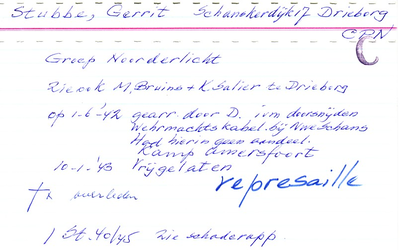 Stubbe, Gerrit Schanskerdijk 17 Drieborg
CPN
Groep Noorderlicht
Zie ook M. Bruins + K. Salier te Drieborg
op 1-6-'42 gearr. door D. ivm doorsnijden
Wehrmachtskabel bij Nwe Schans
Had hierin geen aandeel.
Kamp Amersfoort
10-1-'43 Vrijgelaten
represaille
overleden
1 St. 40/45 Zie schaderapp.